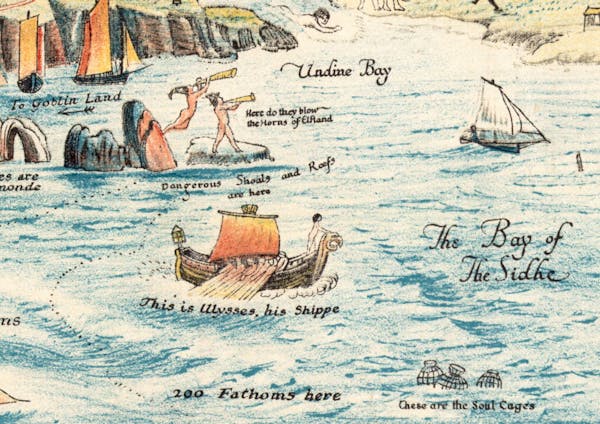 Undine Bay
To Goblin Land
Here do they blow
the Horns of Elfland
es are
monde
Dangerous Shoals and Reefs
are here
The Bay of
The Sidhe
This is Ulysses, his Shippe
ns
200 Fathoms here
These are the Soul Cages